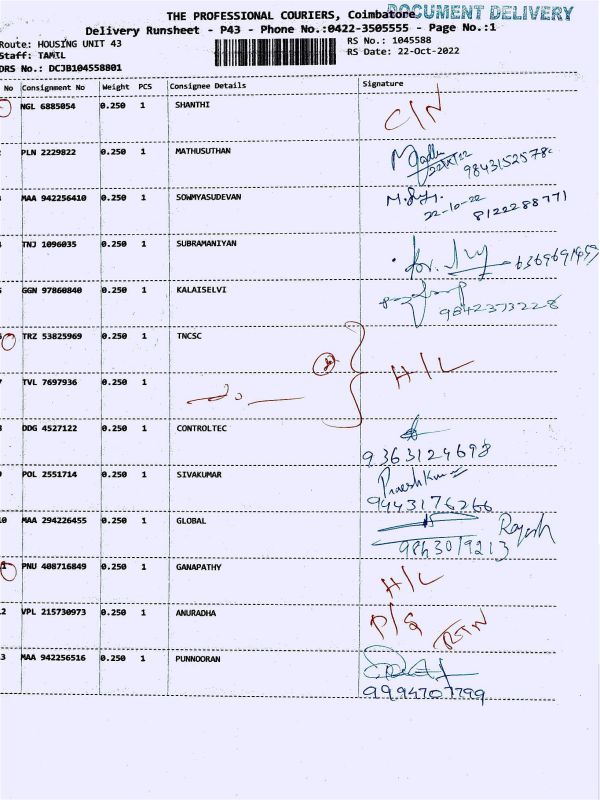 THE PROFESSIONAL COURIERS, Coimbatore
DOCUMENT DELIVERY
Delivery Runsheet - P43 - Phone No.:0422-3505555 - Page No.:1
Route: HOUSING UNIT 43
RS No.: 1045588
Staff: TAMIL
RS Date: 22-Oct-2022
DRS No.: DCJB104558801
No Consignment No Weight PCS Consignee Details Signature
NGL 6885054 0.250 1 SHANTHI C/N
PLN 2229822 0.250 1 MATHUSUTHAN
22/X/22 9843152578
MAA 942256410 0.250 1 SOWMYASUDEVAN
22-10-22 8122288771
TNJ 1096035 0.250 1 SUBRAMANIYAN
GGN 97860840 0.250 1 KALAISELVI
9842373228
TRZ 53825969 0.250 1 TNCSC H/L
TVL 7697936 0.250 1 -do-
DDG 4527122 0.250 1 CONTROLTEC
9363124698
POL 2551714 0.250 1 SIVAKUMAR
9443176266
10 MAA 294226455 0.250 1 GLOBAL Rajesh
PNU 408716849 0.250 1 GANAPATHY H/L
VPL 215730973 0.250 1 ANURADHA RTN
MAA 942256516 0.250 1 PUNNOORAN
9994707799